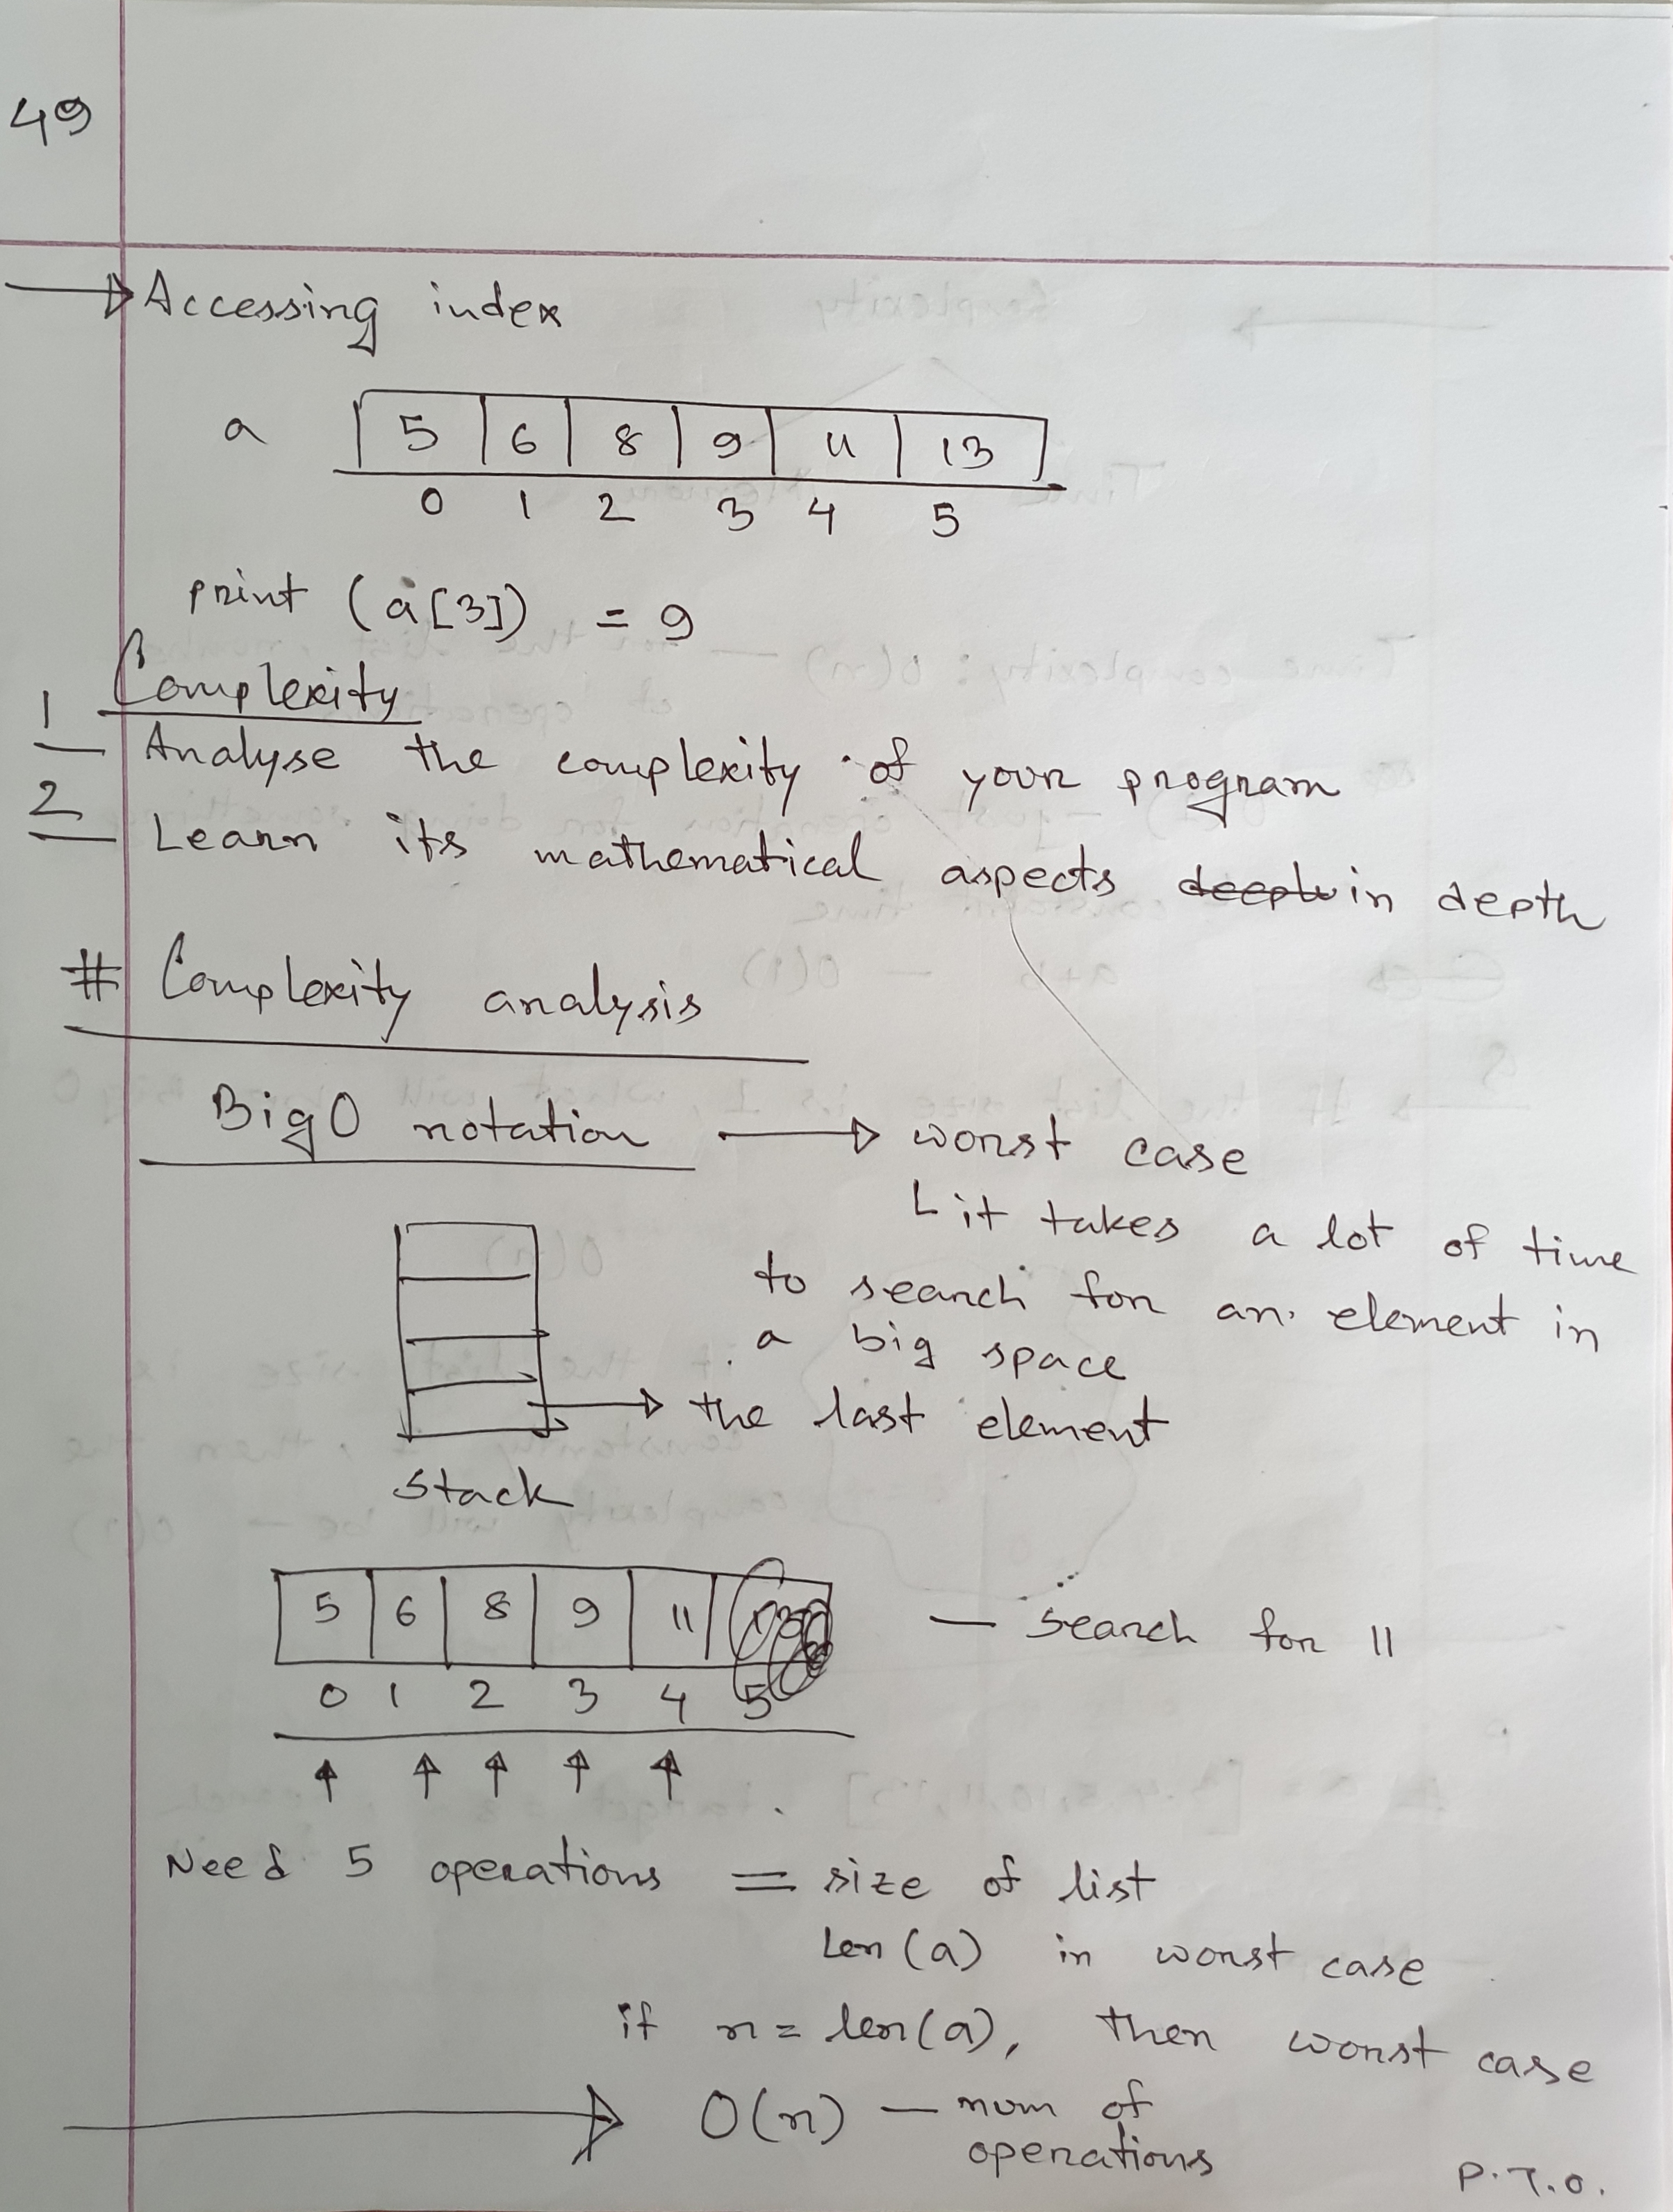 49
Accessing index
a 5 6 8 9 11 13
0 1 2 3 4 5
print (a[3]) = 9
Complexity
1 Analyse the complexity of your program
2 Learn its mathematical aspects in depth
# Complexity analysis
Big O notation → worst case
it takes a lot of time
to search for an element in
a big space
→ the last element
Stack
5 6 8 9 11 — search for 11
0 1 2 3 4 5
Need 5 operations = size of list
Len (a) in worst case
if n = len(a), then worst case
O(n) — num of
operations
P.T.O.